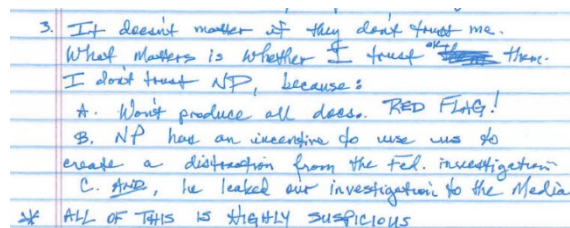 3. It doesn't matter if they don't trust me.
What matters is whether I trust them.
I don't trust NP, because:
A. Won't produce all docs. RED FLAG!
B. NP has an incentive to use us to
create a distraction from the Fed. investigation
C. AND, he leaked our investigation to the Media
* ALL OF THIS IS HIGHLY SUSPICIOUS